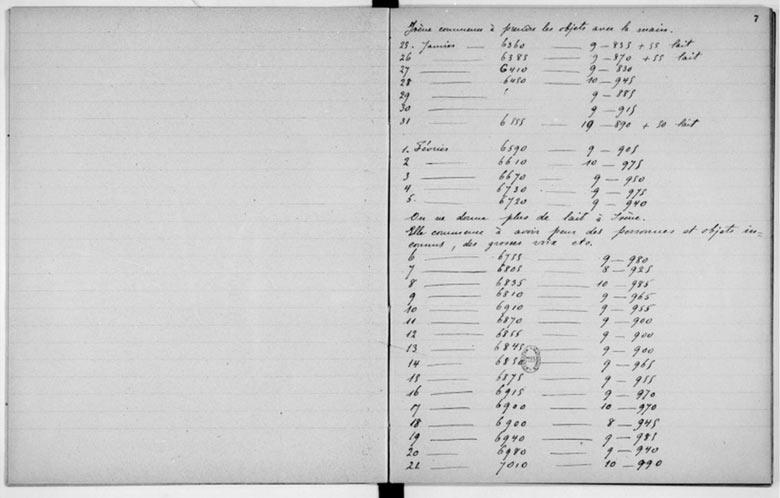 7
Irène commence à prendre les objets avec la main.
25. Janvier — 6360 — 9 — 835 + 55 lait
26 — 6385 — 9 — 870 + 55 lait
27 — 6410 — 9 — 830
28 — 6450 — 10 — 945
29 — 9 — 885
30 — 9 — 915
31 — 6555 — 19 — 890 + 50 lait
1. Février — 6590 — 9 — 905
2 — 6610 — 10 — 975
3 — 6670 — 9 — 950
4 — 6730 — 9 — 975
5. — 6720 — 9 — 940
On ne donne plus de lait à Irène.
Elle commence à avoir peur des personnes et objets in-
connus, des grosses voix etc.
6 — 6755 — 9 — 980
7 — 6805 — 8 — 925
8 — 6835 — 10 — 985
9 — 6810 — 9 — 965
10 — 6910 — 9 — 955
11 — 6870 — 9 — 900
12 — 6855 — 9 — 900
13 — 6845 — 9 — 900
14 — 6850 — 9 — 965
15 — 6875 — 9 — 955
16 — 6915 — 9 — 970
17 — 6900 — 10 — 970
18 — 6900 — 8 — 945
19 — 6940 — 9 — 985
20 — 6980 — 9 — 940
21 — 7010 — 10 — 990